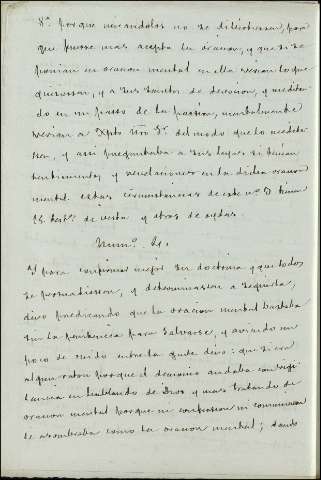 8ª porque mirandolos no se distraxesen, para
que fuesse mas acepta la oracion, y que si se
ponian en oracion mental en ella verian lo que
quisiessen, y a sus santos de devocion, y medita
do en un passo de la passion, mentalmente
verian a Xpto ntro Sr. del modo que lo medita
sen, y assi preguntaba a sus hijas si tenian
sentimientos y revelaciones en la dicha oracion
mental estas circunstancias de este nº 3 tienen
15 test.ˢ de vista y otros de oydas.
Num.º 4.
Y para confirmar mejor su doctrina y que todos
se persuadiessen, y determinassen a seguirla,
dixo predicando que la oracion mental bastaba
sin la penitencia para salvarse, y aviendo un
poco de ruido entre la gente dixo: que si era
algun raton porque el demonio andaba con vigi
lancia en hablando de Dios y mas tratando de
oracion mental porque ni confession ni comunion
le assombraba como la oracion mental; dando